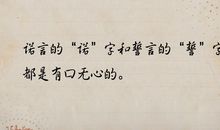 诺言的“诺”字和誓言的“誓”字
都是有口无心的。